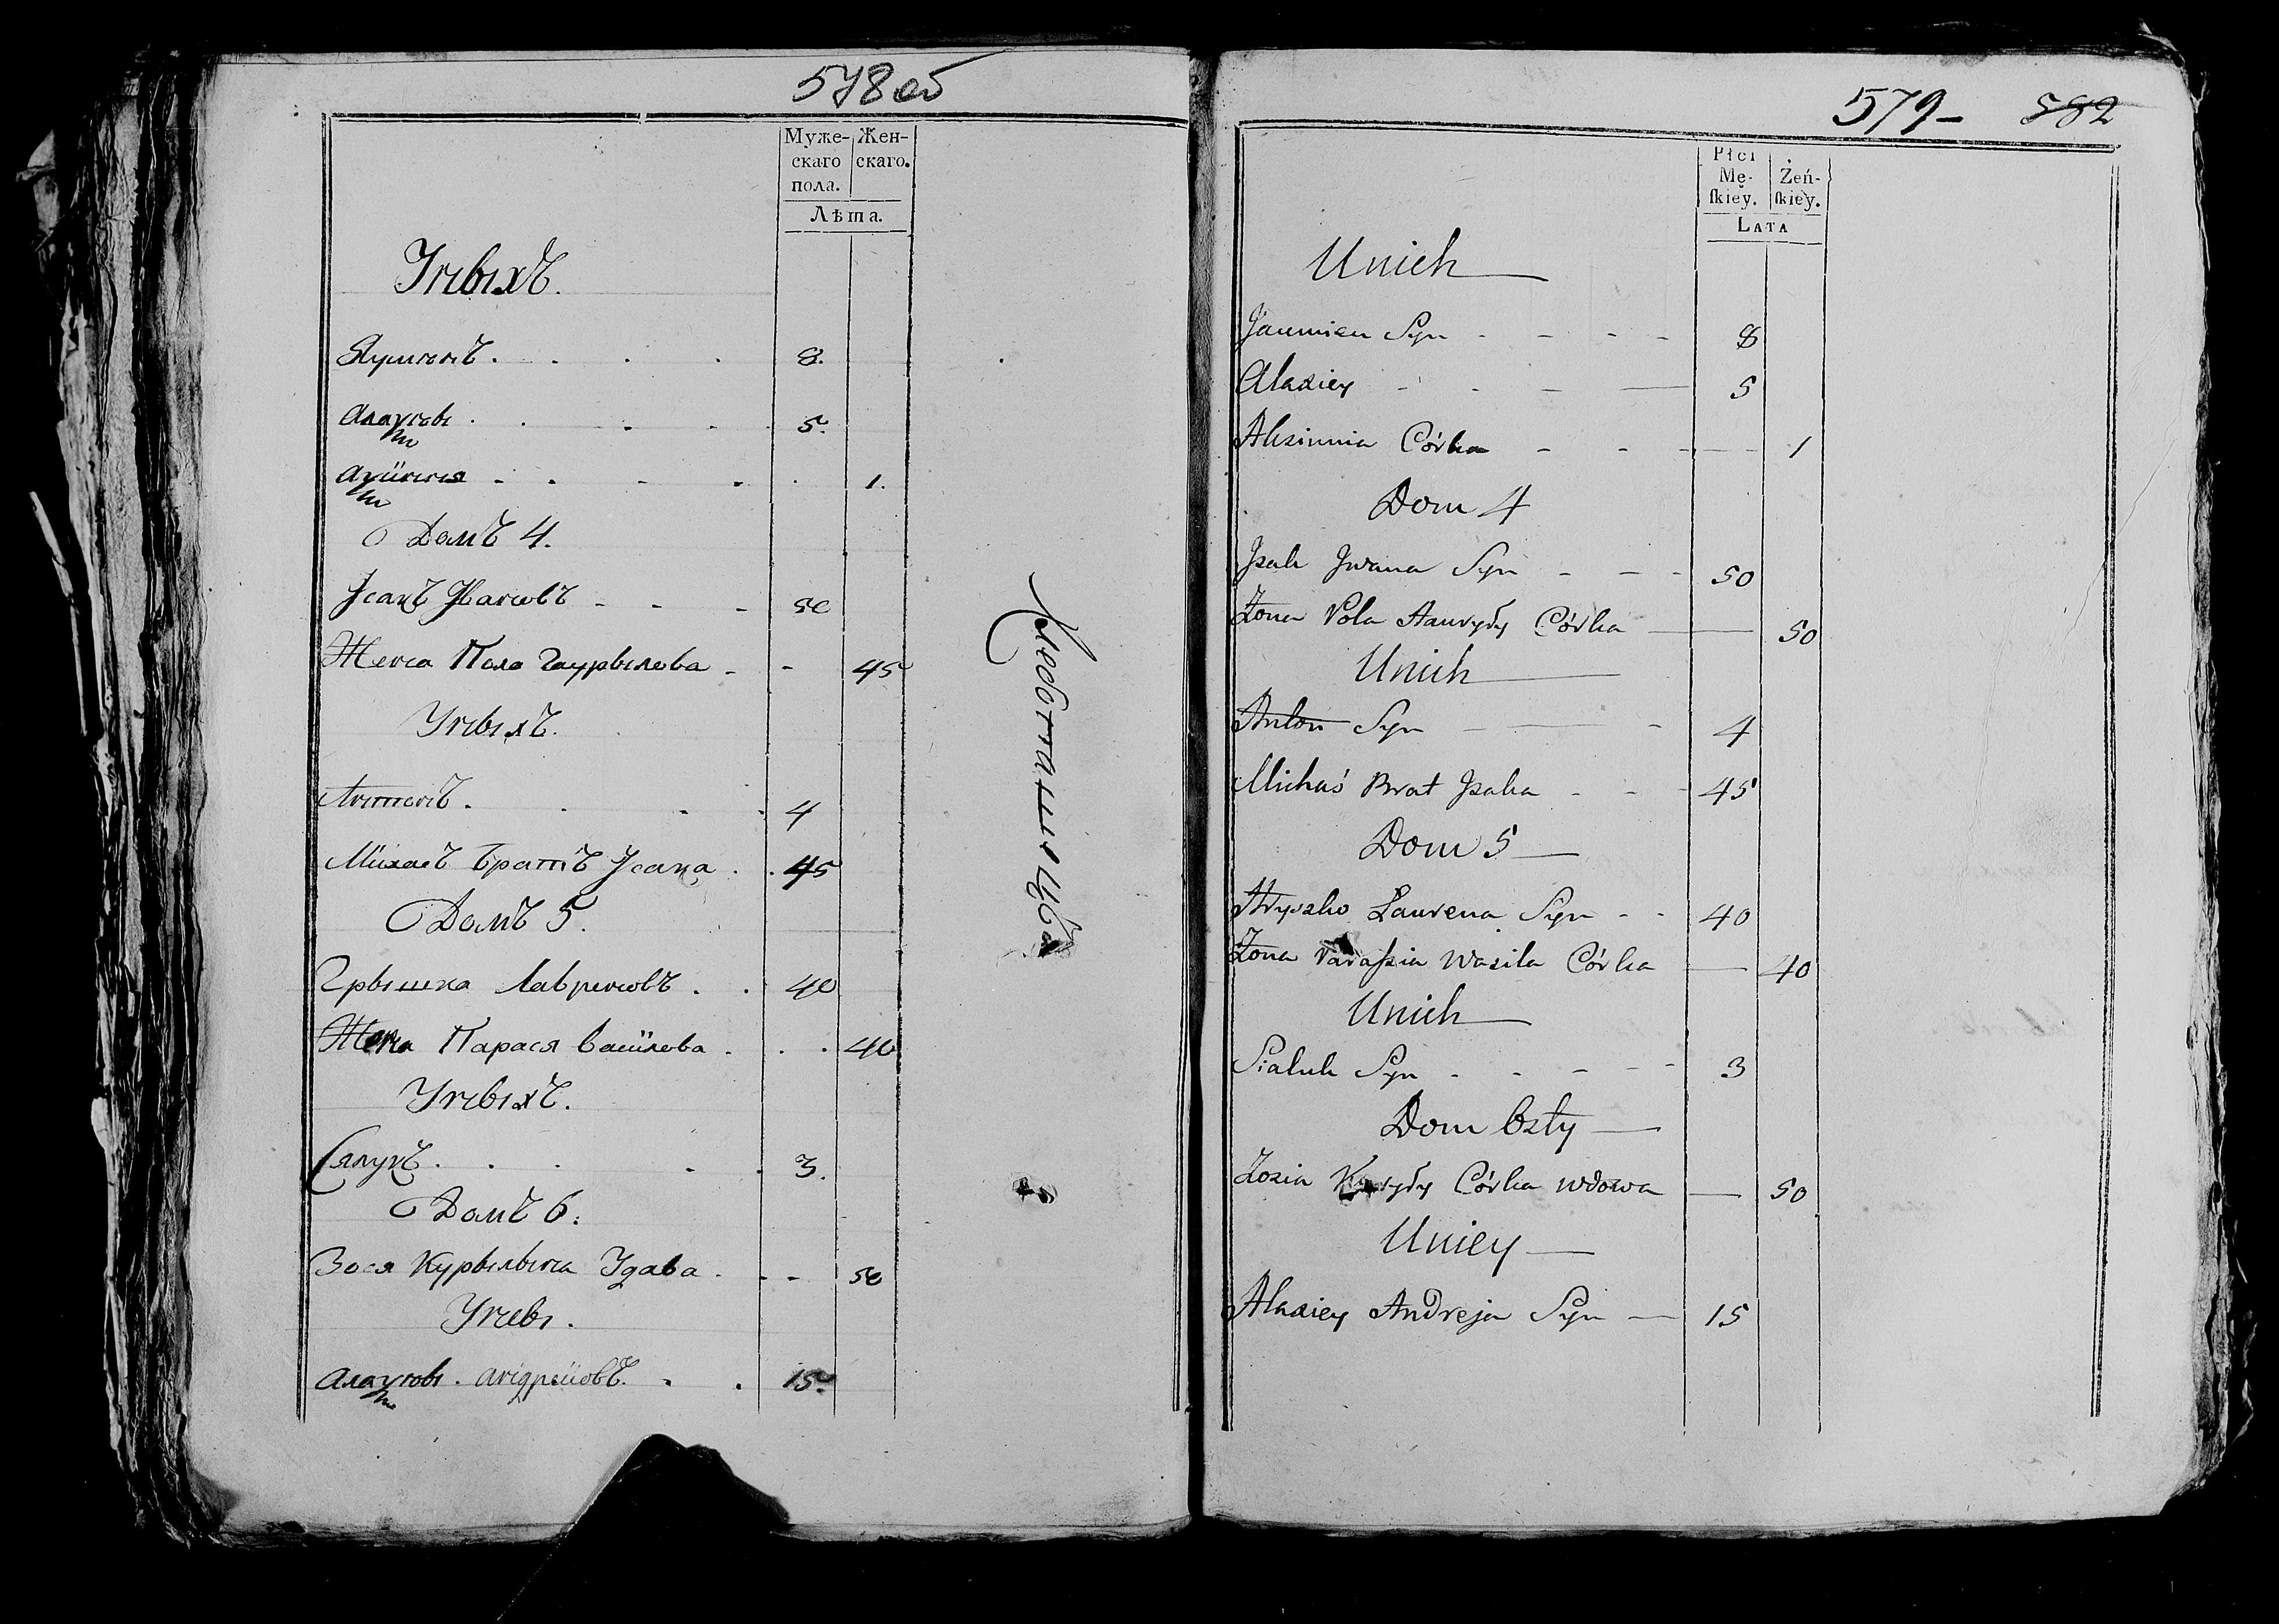 578 об
Муже- Жен-
скаго скаго.
пола.
Лѣта.
Унвıхъ.
Яуминъ . . . . 8.
Алахтѣвı . . . . 5.
Ахїння . . . . 1.
Домъ 4.
Јсакъ Јвановъ - - - 50
Жена Пола Гаурвıлова - - 45
Унвıхъ.
Антонъ . . . . 4
Мїхасъ братъ Јсака . . 45
Домъ 5.
Грвıшка Лавреновъ . . 40
Жена Парася васїлова . . . 40
Унвıхъ.
Сялукъ . . . . 3.
Домъ 6.
Зося Курвıлвıна Удава . . - 50
Унеı .
Алахтѣвı . андрейовъ . . 15.
579- 582
Płci
Mę- Żeń-
ſkiey. ſkiey.
LATA
Unich
Jaumien Syn - - - - 8
Alaxiey - - - — 5
Aksinnia Córka - - - - - 1
Dom 4
Jzak Jwana Syn - - - 50
Żona Pola Hauryły Córka — — 50
Unich
Anton Syn - — - 4
Michaś Brat Jzaka - - - 45
Dom 5 —
Hryszko Laurena Syn - - 40
Żona Paraſzia Wasila Córka — 40
Unich
Sialuk Syn - - - - - 3
Dom 6sty —
Zosia Kuryły Córka wdowa — 50
Uniey —
Alaxiey Andreja Syn — 15